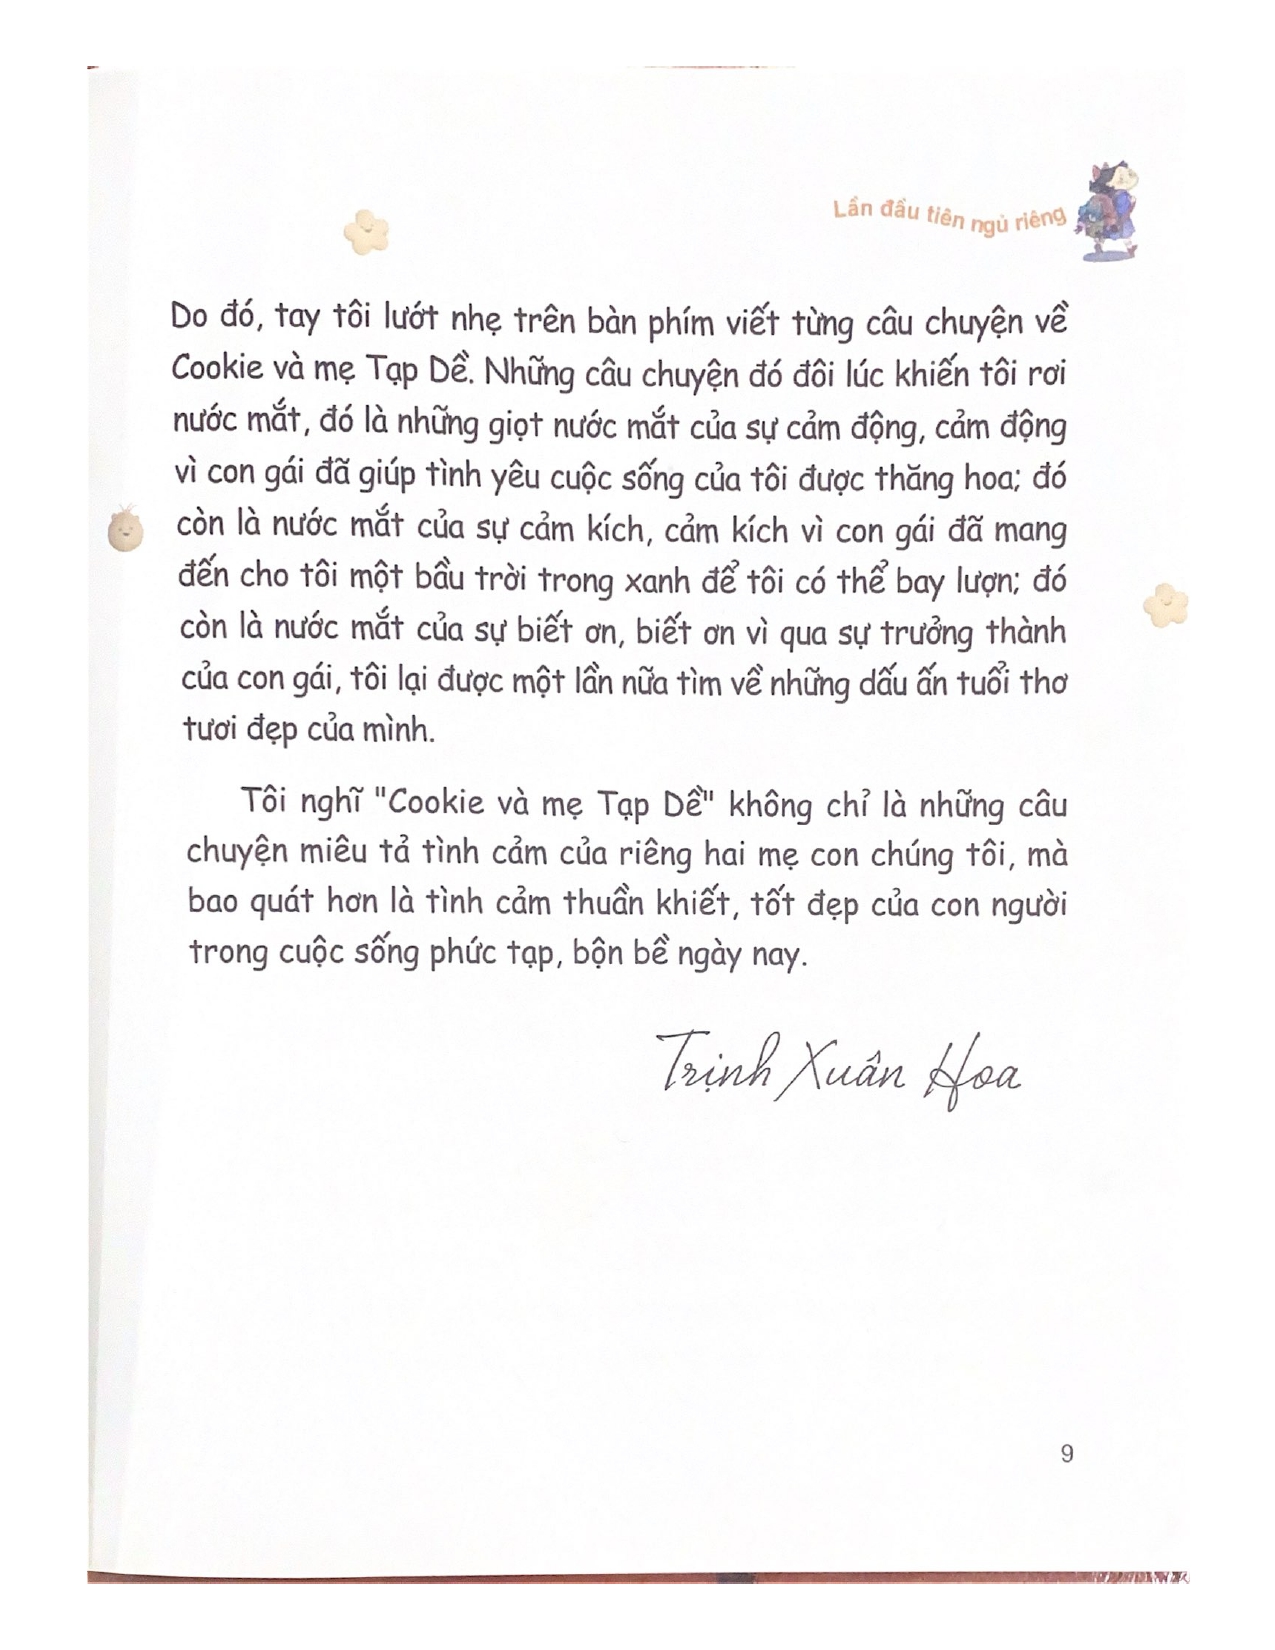 Lần đầu tiên ngủ riêng
Do đó, tay tôi lướt nhẹ trên bàn phím viết từng câu chuyện về
Cookie và mẹ Tạp Dề. Những câu chuyện đó đôi lúc khiến tôi rơi
nước mắt, đó là những giọt nước mắt của sự cảm động, cảm động
vì con gái đã giúp tình yêu cuộc sống của tôi được thăng hoa; đó
còn là nước mắt của sự cảm kích, cảm kích vì con gái đã mang
đến cho tôi một bầu trời trong xanh để tôi có thể bay lượn; đó
còn là nước mắt của sự biết ơn, biết ơn vì qua sự trưởng thành
của con gái, tôi lại được một lần nữa tìm về những dấu ấn tuổi thơ
tươi đẹp của mình.
Tôi nghĩ "Cookie và mẹ Tạp Dề" không chỉ là những câu
chuyện miêu tả tình cảm của riêng hai mẹ con chúng tôi, mà
bao quát hơn là tình cảm thuần khiết, tốt đẹp của con người
trong cuộc sống phức tạp, bộn bề ngày nay.
Trịnh Xuân Hoa
9